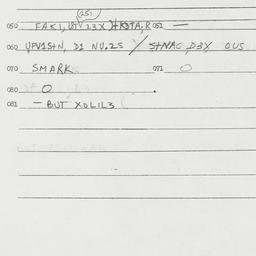 (251)
050 FAKI, UTV 23X 052 —
060 UPV1S+N, D1 NU.2S / S+NAC, D3X OUS
070 SMARK 071 O
080 O .
081 — BUT XOLIL3